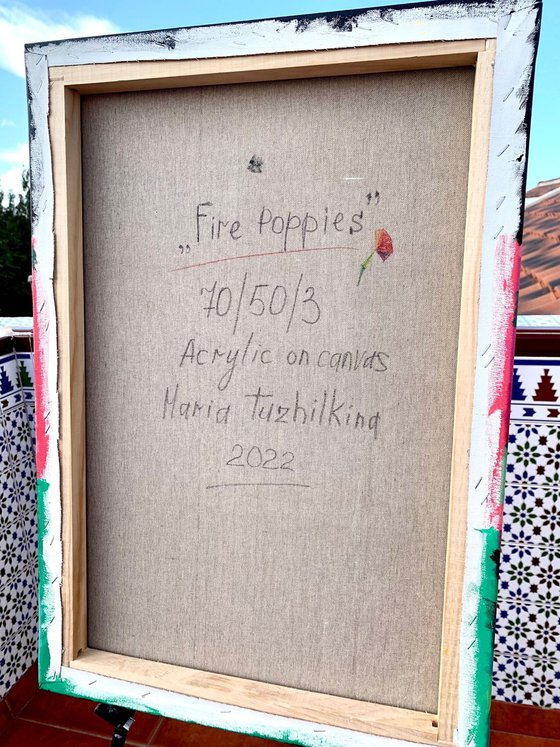 „Fire Poppies”
70/50/3
Acrylic on canvas
Maria Tuzhilkina
2022